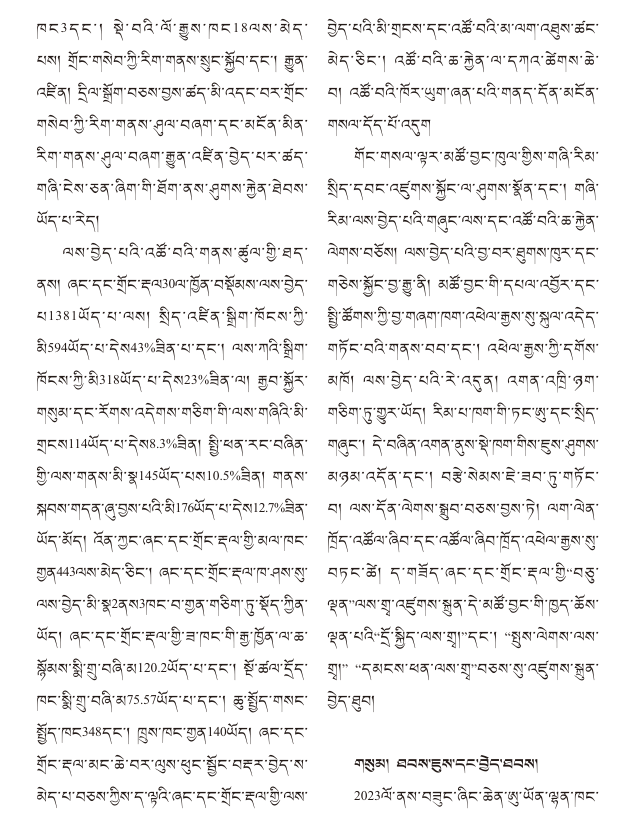 ཁང3དང་། སྡེ་བའི་ལོ་རྒྱུས་ཁང18ལས་མེད་
པས། གྲོང་གསེབ་ཀྱི་རིག་གནས་སྲུང་སྐྱོབ་དང་། རྒྱུན་
འཛིན། དྲིལ་སྒྲོག་བཅས་བྱས་ཚད་མི་འདང་བར་གྲོང་
གསེབ་ཀྱི་རིག་གནས་ཤུལ་བཞག་དང་མངོན་མིན་
རིག་གནས་ཤུལ་བཞག་རྒྱུན་འཛིན་བྱེད་པར་ཚད་
གཞི་ངེས་ཅན་ཞིག་གི་ཐོག་ནས་ཤུགས་རྐྱེན་ཐེབས་
ཡོད་པ་རེད།
ལས་བྱེད་པའི་འཚོ་བའི་གནས་ཚུལ་གྱི་ཐད་
ནས། ཞང་དང་གྲོང་རྡལ30ལ་ཁྱོན་བསྡོམས་ལས་བྱེད་
པ1381ཡོད་པ་ལས། སྲིད་འཛིན་སྒྲིག་ཁོངས་ཀྱི་
མི594ཡོད་པ་དེས43%ཟིན་པ་དང་། ལས་ཀའི་སྒྲིག་
ཁོངས་ཀྱི་མི318ཡོད་པ་དེས23%ཟིན་ལ། རྒྱབ་སྐྱོར་
གསུམ་དང་རོགས་འདེགས་གཅིག་གི་ལས་གཞིའི་མི་
གྲངས114ཡོད་པ་དེས8.3%ཟིན། སྤྱི་ཕན་རང་བཞིན་
གྱི་ལས་གནས་མི་སྣ145ཡོད་པས10.5%ཟིན། གནས་
སྐབས་གདན་ཞུ་བྱས་པའི་མི176ཡོད་པ་དེས12.7%ཟིན་
ཡོད་མོད། འོན་ཀྱང་ཞང་དང་གྲོང་རྡལ་གྱི་མལ་ཁང་
གྲན443ལས་མེད་ཅིང་། ཞང་དང་གྲོང་རྡལ་ཁ་ཤས་སུ་
ལས་བྱེད་མི་སྣ2ནས3ཁང་བ་གྲན་གཅིག་ཏུ་སྡོད་ཀྱིན་
ཡོད། ཞང་དང་གྲོང་རྡལ་གྱི་ཟ་ཁང་གི་རྒྱ་ཁྱོན་ལ་ཆ་
སྙོམས་སྨི་གྲུ་བཞི་མ120.2ཡོད་པ་དང་། སྔོ་ཚལ་དྲོད་
ཁང་སྨི་གྲུ་བཞི་མ75.57ཡོད་པ་དང་། ཆུ་སྤྱོད་གསང་
སྤྱོད་ཁང348དང་། ཁྲུས་ཁང་གྲན140ཡོད། ཞང་དང་
གྲོང་རྡལ་མང་ཆེ་བར་ལུས་ཕུང་སྦྱོང་བརྡར་བྱེད་ས་
མེད་པ་བཅས་ཀྱིས་ད་ལྟའི་ཞང་དང་གྲོང་རྡལ་གྱི་ལས་
བྱེད་པའི་མི་གྲངས་དང་འཚོ་བའི་མ་ལག་འཐུས་ཚང་
མེད་ཅིང་། འཚོ་བའི་ཆ་རྐྱེན་ལ་དཀའ་ཚེགས་ཆེ་
བ། འཚོ་བའི་ཁོར་ཡུག་ཞན་པའི་གནད་དོན་མངོན་
གསལ་དོད་པོ་འདུག
གོང་གསལ་ལྟར་མཚོ་བྱང་ཁུལ་གྱིས་གཞི་རིམ་
སྲིད་དབང་འཛུགས་སྐྱོང་ལ་ཤུགས་སྣོན་དང་། གཞི་
རིམ་ལས་བྱེད་པའི་གཞུང་ལས་དང་འཚོ་བའི་ཆ་རྐྱེན་
ལེགས་བཅོས། ལས་བྱེད་པའི་བྱ་བར་ཐུགས་ཁུར་དང་
གཅེས་སྐྱོང་བྱ་རྒྱུ་ནི། མཚོ་བྱང་གི་དཔལ་འབྱོར་དང་
སྤྱི་ཚོགས་ཀྱི་བྱ་གཞག་ཁག་འཕེལ་རྒྱས་སུ་སྐུལ་འདེད་
གཏོང་བའི་གནས་བབ་དང་། འཕེལ་རྒྱས་ཀྱི་དགོས་
མཁོ། ལས་བྱེད་པའི་རེ་འདུན། འགན་འཁྲི་ཉག་
གཅིག་ཏུ་གྱུར་ཡོད། རིམ་པ་ཁག་གི་ཏང་ཨུ་དང་སྲིད་
གཞུང་། དེ་བཞིན་འགན་ནུས་སྡེ་ཁག་གིས་ཇུས་ཤུགས་
མཉམ་འདོན་དང་། བརྩེ་སེམས་ཇེ་ཟབ་ཏུ་གཏོང་
བ། ལས་དོན་ལེགས་སྒྲུབ་བཅས་བྱས་ཏེ། ལག་ལེན་
ཁྲོད་འཚོལ་ཞིབ་དང་འཚོལ་ཞིབ་ཁྲོད་འཕེལ་རྒྱས་སུ་
བཏང་ཚེ། ད་གཟོད་ཞང་དང་གྲོང་རྡལ་གྱི“བཅུ་
ལྡན”ལས་གྲྭ་འཛུགས་སྐྲུན་དེ་མཚོ་བྱང་གི་ཁྱད་ཆོས་
ལྡན་པའི“དྲོ་སྐྱིད་ལས་གྲྭ།”དང་། “སྤུས་ལེགས་ལས་
གྲྭ།” “དམངས་ཕན་ལས་གྲྭ”བཅས་སུ་འཛུགས་སྐྲུན་
བྱེད་ཐུབ།
གསུམ། ཐབས་ཇུས་དང་བྱེད་ཐབས།
2023ལོ་ནས་བཟུང་ཞིང་ཆེན་ཨུ་ཡོན་ལྷན་ཁང་